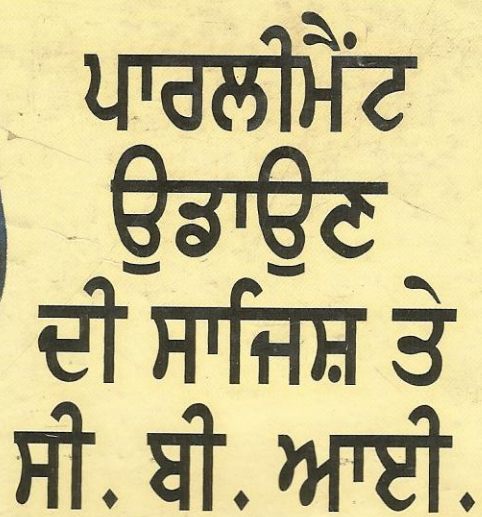 ਪਾਰਲੀਮੈਂਟ
ਉਡਾਉਣ
ਦੀ ਸਾਜਿਸ਼ ਤੇ
ਸੀ. ਬੀ. ਆਈ.